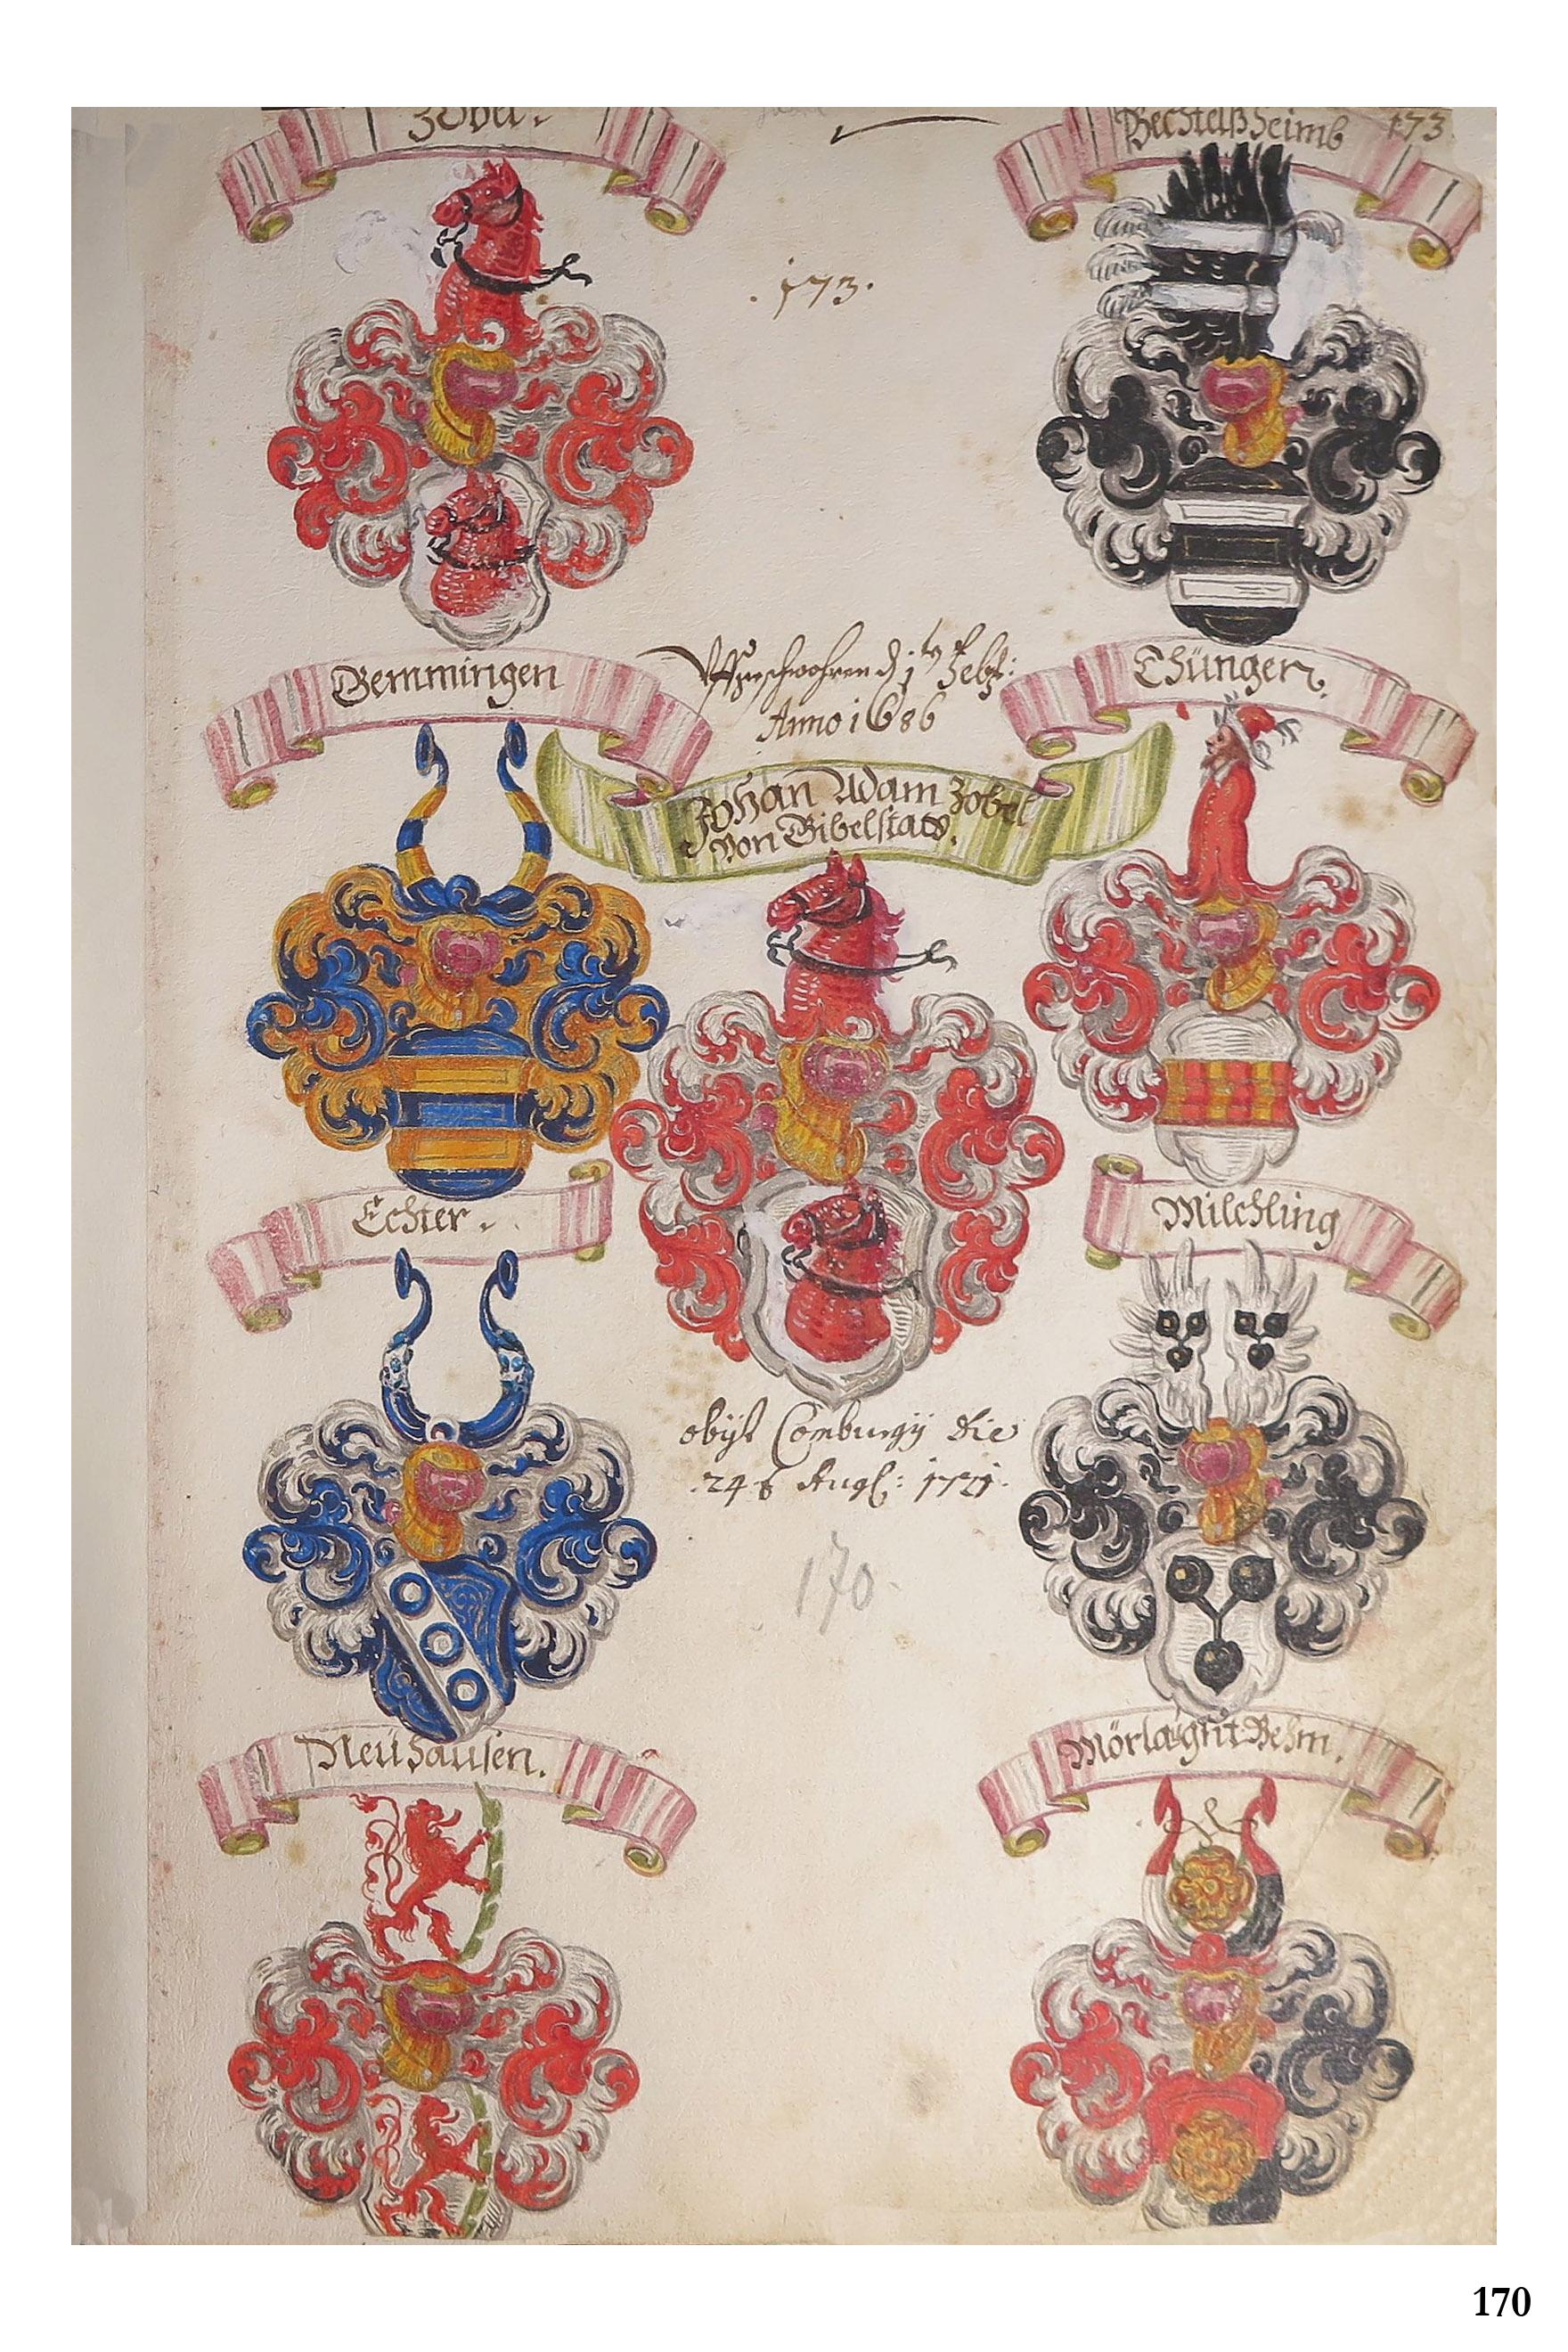 Zobel.
Bechtelßheimb 173
.173.
Gemmingen
Auffgeschwohren d. 1ten Febr:
Anno 1686
Thüngen.
Johan Adam Zobel
von Gibelstadt.
Echter.
Milchling
obijt Comburgij die
.24 t Aug: 1721.
170
Neühausen.
Mörla gnt Behm.
170